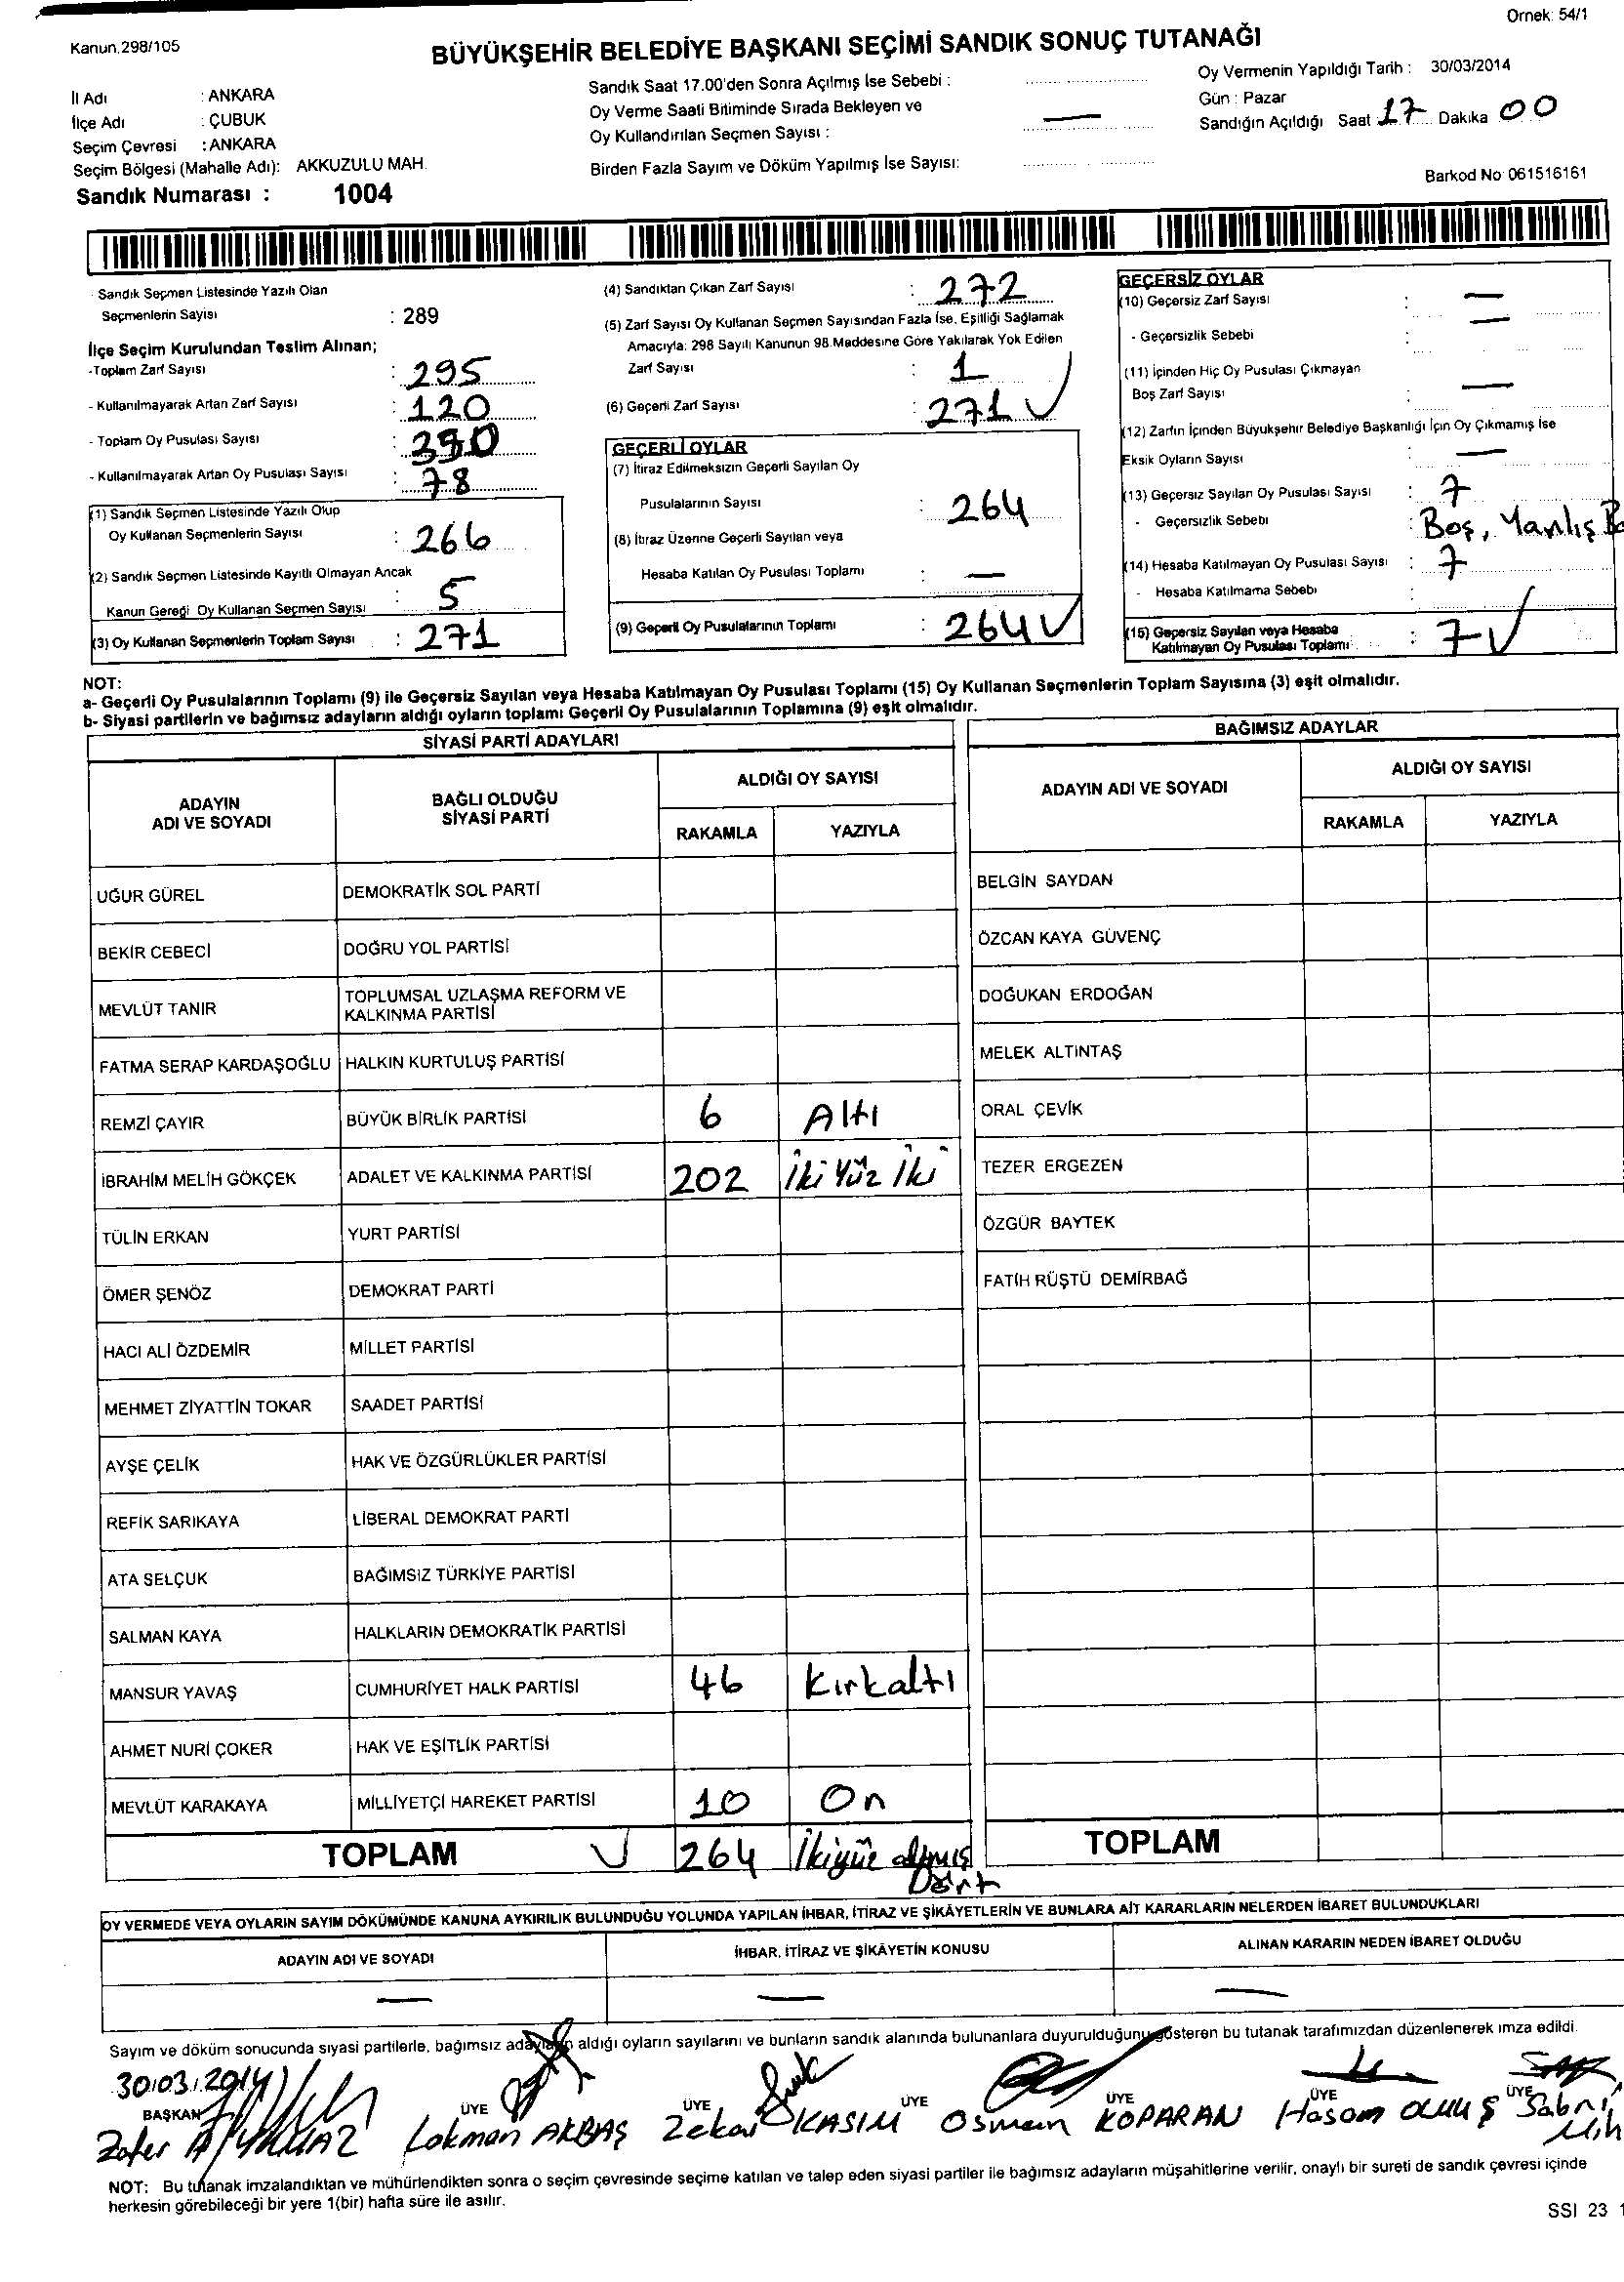 Ornek: 54/1
Kanun.298/105
BÜYÜKŞEHİR BELEDİYE BAŞKANI SEÇİMİ SANDIK SONUÇ TUTANAĞI
İl Adı : ANKARA
İlçe Adı : ÇUBUK
Seçim Çevresi : ANKARA
Seçim Bölgesi (Mahalle Adı): AKKUZULU MAH.
Sandık Numarası : 1004
Sandık Saat 17.00'den Sonra Açılmış İse Sebebi :
Oy Verme Saati Bitiminde Sırada Bekleyen ve
Oy Kullandırılan Seçmen Sayısı : —
Birden Fazla Sayım ve Döküm Yapılmış İse Sayısı:
Oy Vermenin Yapıldığı Tarih : 30/03/2014
Gün : Pazar
Sandığın Açıldığı Saat 17 Dakika 00
Barkod No 061516161
- Sandık Seçmen Listesinde Yazılı Olan
Seçmenlerin Sayısı : 289
İlçe Seçim Kurulundan Teslim Alınan;
-Toplam Zarf Sayısı : 295
- Kullanılmayarak Artan Zarf Sayısı : 120
- Toplam Oy Pusulası Sayısı :
- Kullanılmayarak Artan Oy Pusulası Sayısı : 78
(1) Sandık Seçmen Listesinde Yazılı Olup
Oy Kullanan Seçmenlerin Sayısı : 266
(2) Sandık Seçmen Listesinde Kayıtlı Olmayan Ancak
Kanun Gereği Oy Kullanan Seçmen Sayısı : 5
(3) Oy Kullanan Seçmenlerin Toplam Sayısı : 271
(4) Sandıktan Çıkan Zarf Sayısı : 272
(5) Zarf Sayısı Oy Kullanan Seçmen Sayısından Fazla İse, Eşitliği Sağlamak
Amacıyla: 298 Sayılı Kanunun 98.Maddesine Göre Yakılarak Yok Edilen
Zarf Sayısı : 1
(6) Geçerli Zarf Sayısı : 271 ✓
GEÇERLİ OYLAR
(7) İtiraz Edilmeksizin Geçerli Sayılan Oy
Pusulalarının Sayısı : 264
(8) İtiraz Üzerine Geçerli Sayılan veya
Hesaba Katılan Oy Pusulası Toplamı : —
(9) Geçerli Oy Pusulalarının Toplamı : 264 ✓
GEÇERSİZ OYLAR
(10) Geçersiz Zarf Sayısı : —
- Geçersizlik Sebebi : —
(11) İçinden Hiç Oy Pusulası Çıkmayan
Boş Zarf Sayısı : —
(12) Zarfın İçinden Büyükşehir Belediye Başkanlığı İçin Oy Çıkmamış İse
Eksik Oyların Sayısı : —
(13) Geçersiz Sayılan Oy Pusulası Sayısı : 7
- Geçersizlik Sebebi : Boş, Yanlış
(14) Hesaba Katılmayan Oy Pusulası Sayısı : 7
- Hesaba Katılmama Sebebi :
(15) Geçersiz Sayılan veya Hesaba
Katılmayan Oy Pusulası Toplamı : 7 ✓
NOT:
a- Geçerli Oy Pusulalarının Toplamı (9) ile Geçersiz Sayılan veya Hesaba Katılmayan Oy Pusulası Toplamı (15) Oy Kullanan Seçmenlerin Toplam Sayısına (3) eşit olmalıdır.
b- Siyasi partilerin ve bağımsız adayların aldığı oyların toplamı Geçerli Oy Pusulalarının Toplamına (9) eşit olmalıdır.
SİYASİ PARTİ ADAYLARI
ADAYIN ADI VE SOYADI BAĞLI OLDUĞU SİYASİ PARTİ ALDIĞI OY SAYISI
RAKAMLA YAZIYLA
UĞUR GÜREL DEMOKRATİK SOL PARTİ
BEKİR CEBECİ DOĞRU YOL PARTİSİ
MEVLÜT TANIR TOPLUMSAL UZLAŞMA REFORM VE KALKINMA PARTİSİ
FATMA SERAP KARDAŞOĞLU HALKIN KURTULUŞ PARTİSİ
REMZİ ÇAYIR BÜYÜK BİRLİK PARTİSİ 6 Altı
İBRAHİM MELİH GÖKÇEK ADALET VE KALKINMA PARTİSİ 202 İki Yüz İki
TÜLİN ERKAN YURT PARTİSİ
ÖMER ŞENÖZ DEMOKRAT PARTİ
HACI ALİ ÖZDEMİR MİLLET PARTİSİ
MEHMET ZİYATTİN TOKAR SAADET PARTİSİ
AYŞE ÇELİK HAK VE ÖZGÜRLÜKLER PARTİSİ
REFİK SARIKAYA LİBERAL DEMOKRAT PARTİ
ATA SELÇUK BAĞIMSIZ TÜRKİYE PARTİSİ
SALMAN KAYA HALKLARIN DEMOKRATİK PARTİSİ
MANSUR YAVAŞ CUMHURİYET HALK PARTİSİ 46 Kırkaltı
AHMET NURİ ÇOKER HAK VE EŞİTLİK PARTİSİ
MEVLÜT KARAKAYA MİLLİYETÇİ HAREKET PARTİSİ 10 On
TOPLAM ✓ 264 İkiyüz altmış
Dört
BAĞIMSIZ ADAYLAR
ADAYIN ADI VE SOYADI ALDIĞI OY SAYISI
RAKAMLA YAZIYLA
BELGİN SAYDAN
ÖZCAN KAYA GÜVENÇ
DOĞUKAN ERDOĞAN
MELEK ALTINTAŞ
ORAL ÇEVİK
TEZER ERGEZEN
ÖZGÜR BAYTEK
FATİH RÜŞTÜ DEMİRBAĞ
TOPLAM
OY VERMEDE VEYA OYLARIN SAYIM DÖKÜMÜNDE KANUNA AYKIRILIK BULUNDUĞU YOLUNDA YAPILAN İHBAR, İTİRAZ VE ŞİKÂYETLERİN VE BUNLARA AİT KARARLARIN NELERDEN İBARET BULUNDUKLARI
ADAYIN ADI VE SOYADI İHBAR, İTİRAZ VE ŞİKÂYETİN KONUSU ALINAN KARARIN NEDEN İBARET OLDUĞU
— — —
Sayım ve döküm sonucunda siyasi partilerle, bağımsız adayların aldığı oyların sayılarını ve bunların sandık alanında bulunanlara duyurulduğunu gösteren bu tutanak tarafımızdan düzenlenerek imza edildi.
30/03/2014
BAŞKAN ÜYE ÜYE ÜYE ÜYE ÜYE ÜYE
Zafer Lokman AKBAŞ Zekai KASIM Osman KOPARAN Hasan Sabri
NOT: Bu tutanak imzalandıktan ve mühürlendikten sonra o seçim çevresinde seçime katılan ve talep eden siyasi partiler ile bağımsız adayların müşahitlerine verilir, onaylı bir sureti de sandık çevresi içinde
herkesin görebileceği bir yere 1(bir) hafta süre ile asılır.
SSI 23 1